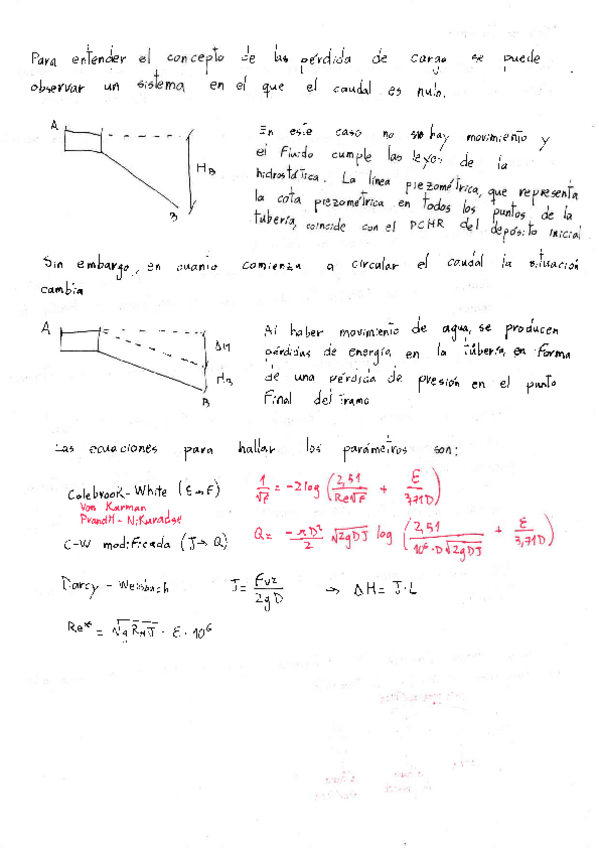 Para entender el concepto de las pérdida de carga se puede
observar un sistema en el que el caudal es nulo.
A
H_B
B
En este caso no hay movimiento y
el fluido cumple las leyes de la
hidrostática. La línea piezométrica, que representa
la cota piezométrica en todos los puntos de la
tubería, coincide con el PCHR del depósito inicial
Sin embargo, en cuanto comienza a circular el caudal la situación
cambia
A
ΔH
H_B
B
Al haber movimiento de agua, se producen
pérdidas de energía en la tubería, en forma
de una pérdida de presión en el punto
final del tramo
Las ecuaciones para hallar los parámetros son:
Colebrook-White (ε→F) 1/√F = -2 log (2,51/(Re√F) + ε/(3,71D))
Von Karman
Prandtl-Nikuradse
C-W modificada (J→Q) Q = -πD²/2 √(2gDJ) log (2,51/(10⁶·D√(2gDJ)) + ε/(3,71D))
Darcy-Weisbach J = Fv²/(2gD) → ΔH = J·L
Re* = √(g R_H J) · ε · 10⁶